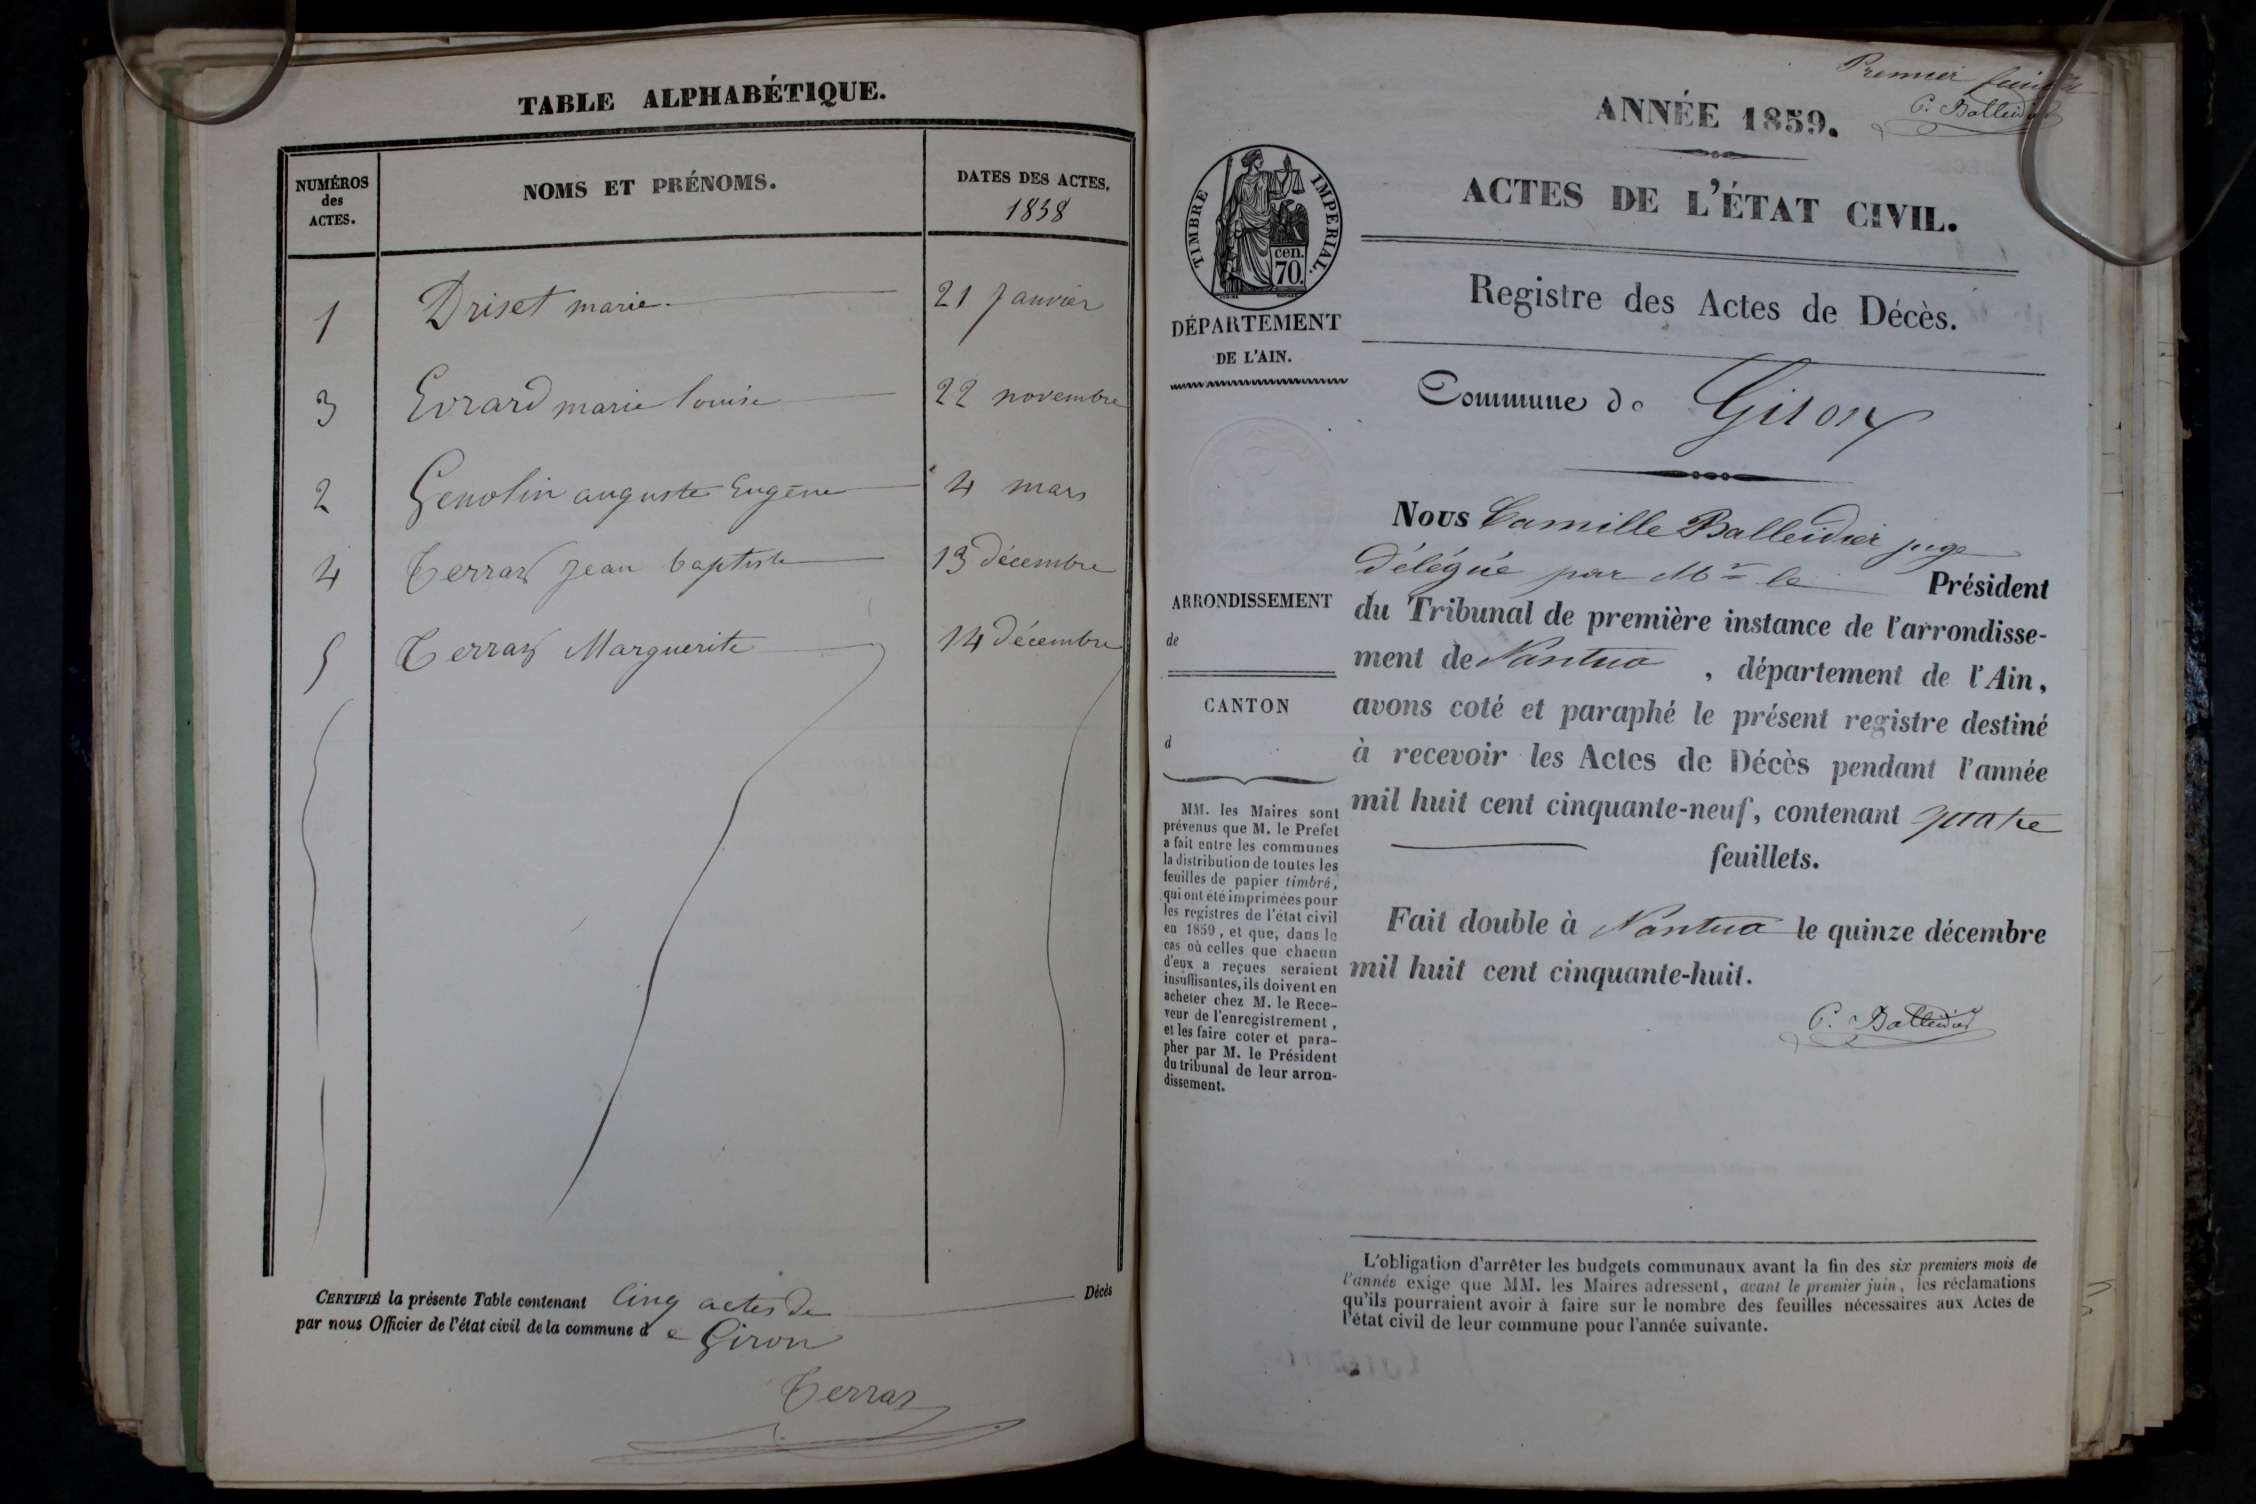 TABLE ALPHABÉTIQUE.
NUMÉROS
des
ACTES.
NOMS ET PRÉNOMS.
DATES DES ACTES.
1858
1 Driset marie 21 Janvier
3 Evrard marie louise 22 novembre
2 Genolin auguste Eugène 4 mars
4 Terraz Jean baptiste 13 décembre
5 Terraz Marguerite 14 décembre
CERTIFIÉ la présente Table contenant Cinq actes de Décès
par nous Officier de l'état civil de la commune d e Giron
Terraz
Premier feuillet
C. Balleidier
ANNÉE 1859.
ACTES DE L'ÉTAT CIVIL.
TIMBRE IMPERIAL.
cen.
70.
DÉPARTEMENT
DE L'AIN.
Registre des Actes de Décès.
Commune de Giron
ARRONDISSEMENT
de
CANTON
d
MM. les Maires sont
prévenus que M. le Préfet
a fait entre les communes
la distribution de toutes les
feuilles de papier timbré,
qui ont été imprimées pour
les registres de l'état civil
en 1859, et que, dans le
cas où celles que chacun
d'eux a reçues seraient
insuffisantes, ils doivent en
acheter chez M. le Rece-
veur de l'enregistrement,
et les faire coter et para-
pher par M. le Président
du tribunal de leur arron-
dissement.
Nous Camille Balleidier juge
délégué par Mr le Président
du Tribunal de première instance de l'arrondisse-
ment de Nantua, département de l'Ain,
avons coté et paraphé le présent registre destiné
à recevoir les Actes de Décès pendant l'année
mil huit cent cinquante-neuf, contenant quatre
feuillets.
Fait double à Nantua le quinze décembre
mil huit cent cinquante-huit.
C. Balleidier
L'obligation d'arrêter les budgets communaux avant la fin des six premiers mois de
l'année exige que MM. les Maires adressent, avant le premier juin, les réclamations
qu'ils pourraient avoir à faire sur le nombre des feuilles nécessaires aux Actes de
l'état civil de leur commune pour l'année suivante.